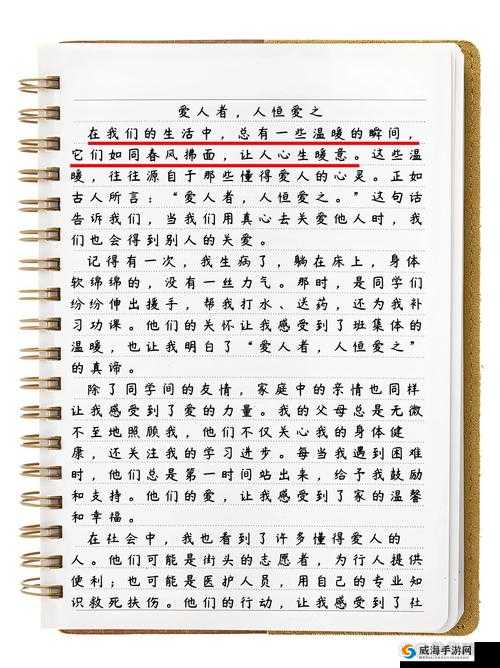 爱人者，人恒爱之
在我们的生活中，总有一些温暖的瞬间，
它们如同春风拂面，让人心生暖意。这些温
暖，往往源自于那些懂得爱人的心灵。正如
古人所言：“爱人者，人恒爱之。”这句话
告诉我们，当我们用真心去关爱他人时，我
们也会得到别人的关爱。
记得有一次，我生病了，躺在床上，身体
软绵绵的，没有一丝力气。那时，是同学们
纷纷伸出援手，帮我打水、送药，还为我补
习功课。他们的关怀让我感受到了班集体的
温暖，也让我明白了“爱人者，人恒爱之”
的真谛。
除了同学间的友情，家庭中的亲情也同样
让我感受到了爱的力量。我的父母总是无微
不至地照顾我，他们不仅关心我的身体健
康，还关注我的学习进步。每当我遇到困难
时，他们总是第一时间站出来，给予我鼓励
和支持。他们的爱，让我感受到了家的温馨
和幸福。
在社会中，我也看到了许多懂得爱人的
人。他们可能是街头的志愿者，为行人提供
便利；也可能是医护人员，用自己的专业知
识救死扶伤。他们的行动，让我感受到了社
威海手游网